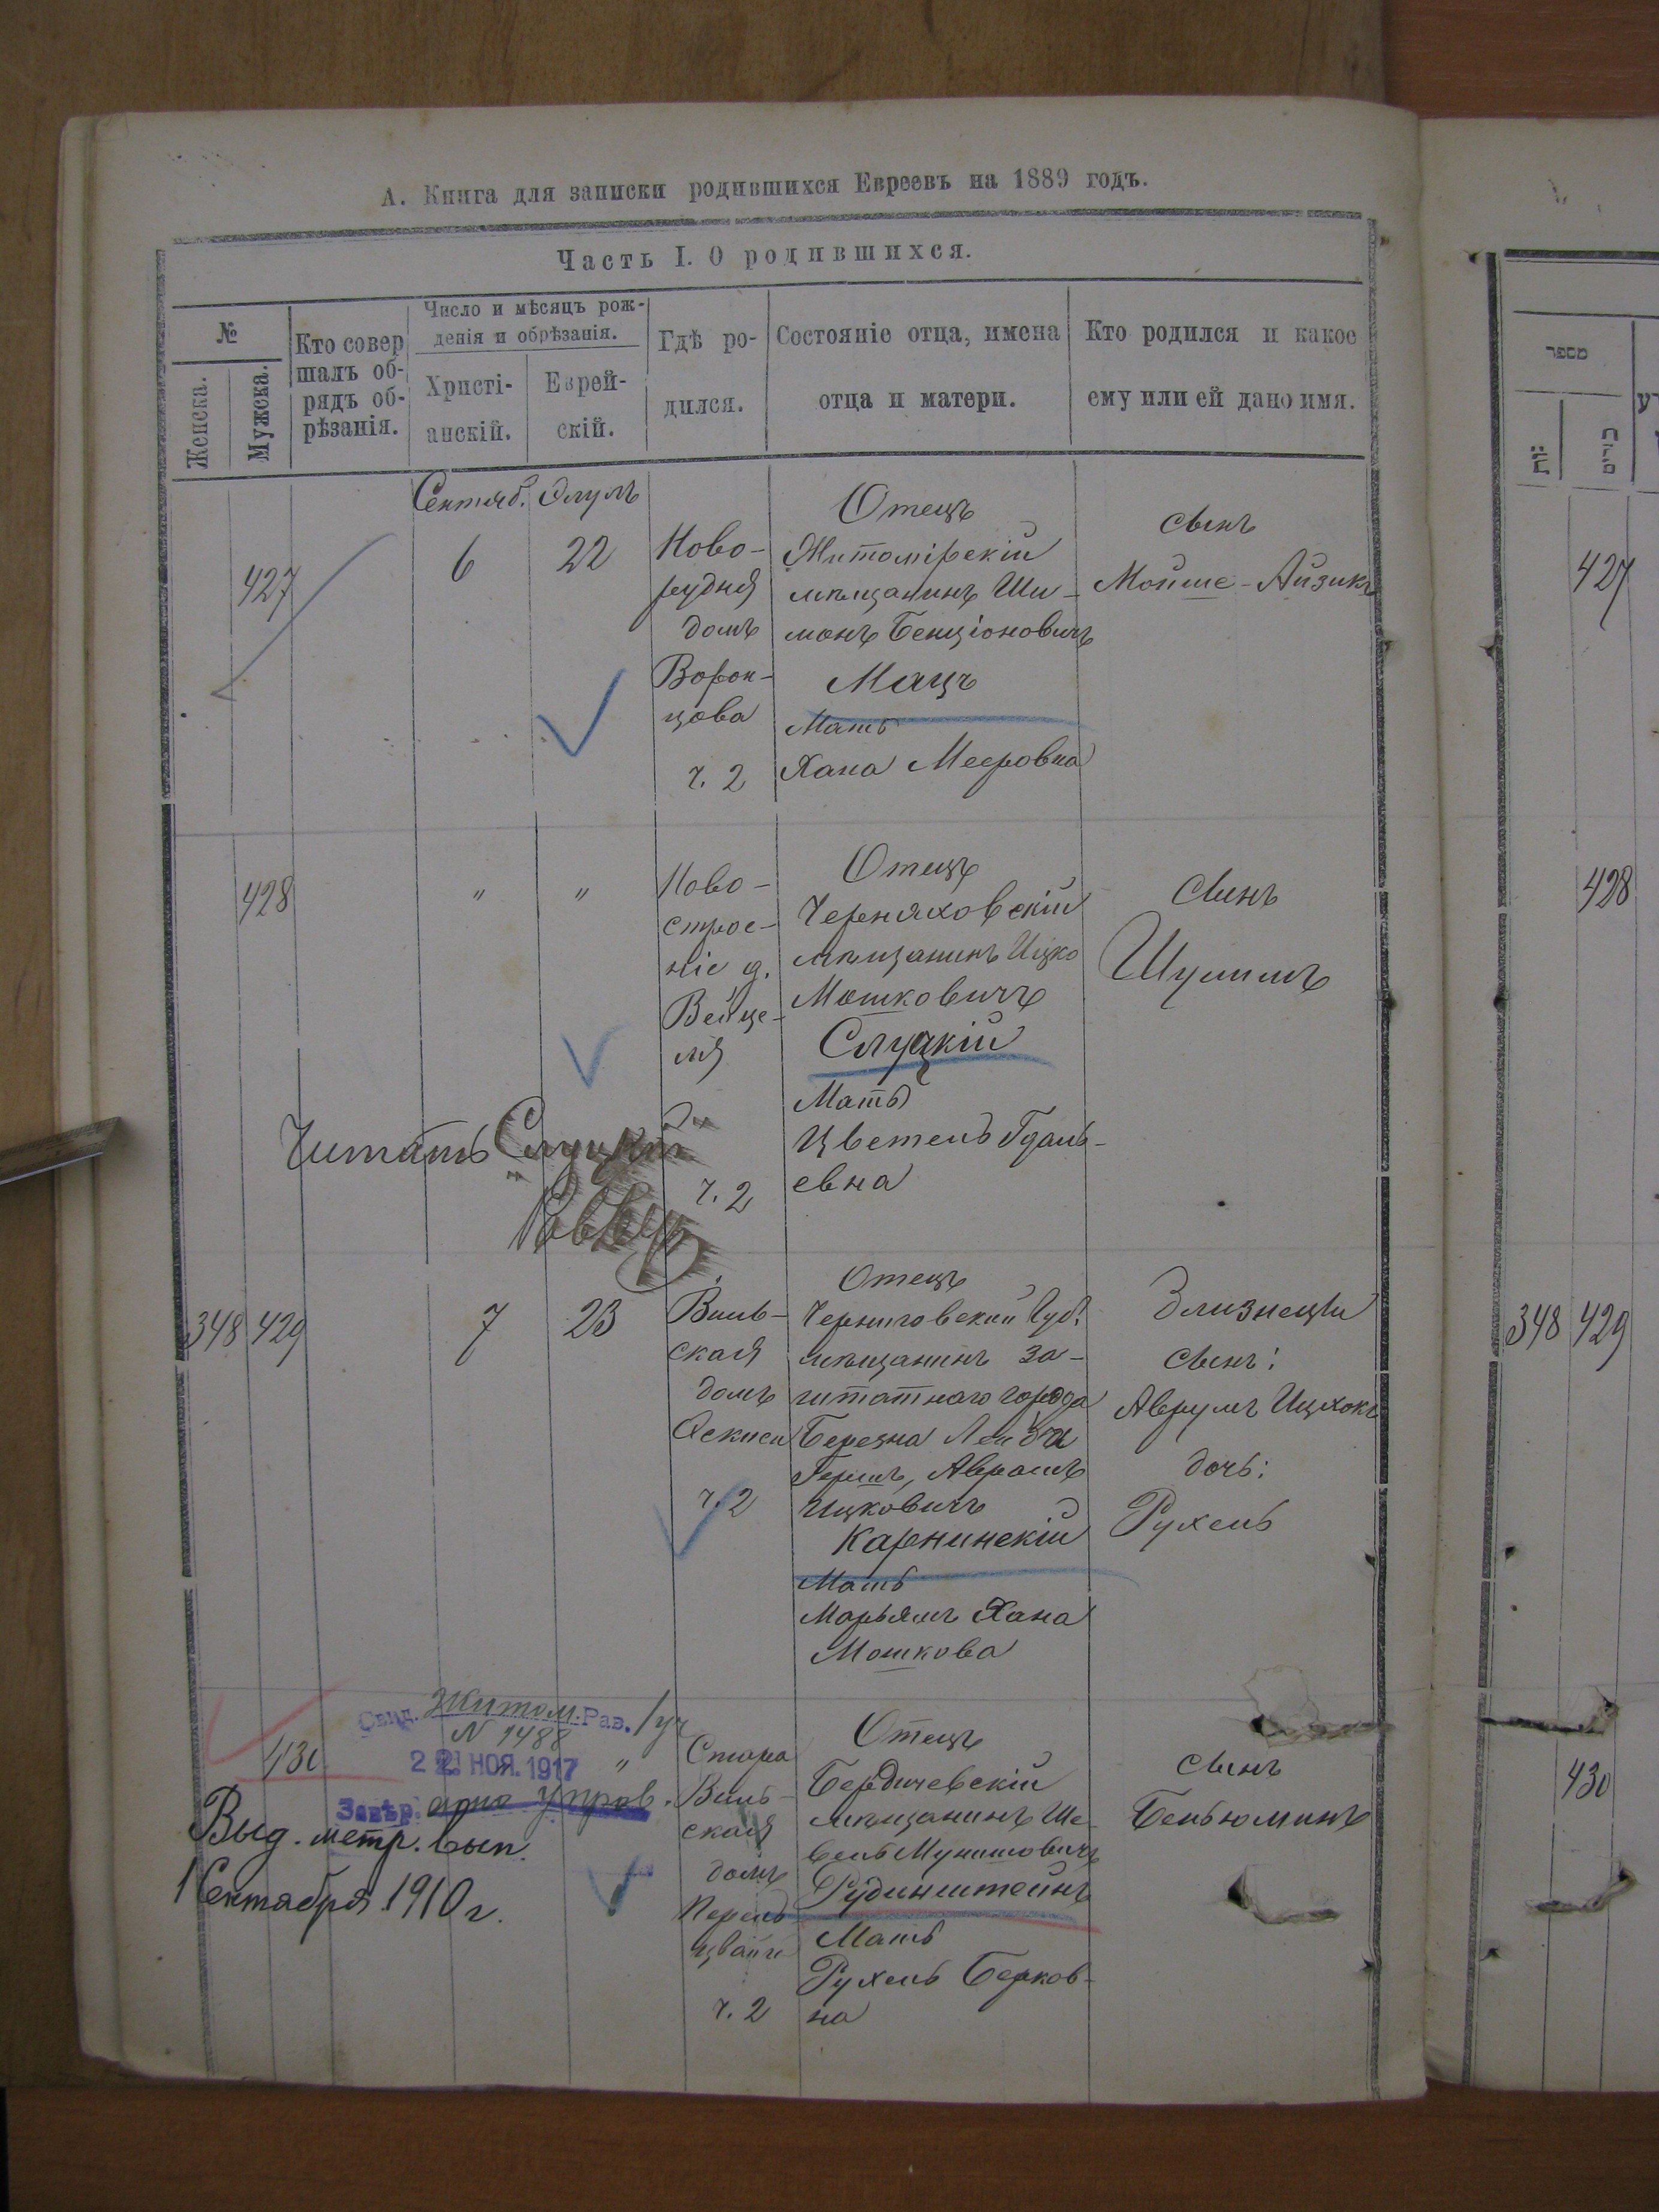 А. Книга для записки родившихся Евреевъ на 1889 годъ.
Часть I. О родившихся.
№
Женска.
Мужска.
Кто совер
шалъ об-
рядъ об-
рѣзанія.
Число и мѣсяцъ рож-
денія и обрѣзанія.
Христі-
анскій.
Еврей-
скій.
Гдѣ ро-
дился.
Состояніе отца, имена
отца и матери.
Кто родился и какое
ему или ей дано имя.
Сентяб. Элулъ
427
6
22
Ново-
рудня
домъ
Ворон-
цова
ч. 2
Отецъ
Житомірскій
мѣщанинъ Ши-
монъ Бенціоновичъ
Мацъ
Мать
Хана Мееровна
сынъ
Мойше-Айзикъ
428
"
"
Ново-
строе-
ніе д.
Вейце-
ля
ч. 2
Отецъ
Черняховскій
мѣщанинъ Ицко
Мошковичъ
Слуцкій
Мать
Цветель Гдаль-
евна
сынъ
Шулимъ
Читать Слуцкій
348 429
7
23
Виль-
ская
домъ
ч. 2
Отецъ
Черниговской Губ.
мѣщанинъ за-
штатнаго города
Березна Лейба
Гершъ, Авромъ
Ицковичъ
Карнинскій
Мать
Марьямъ Хана
Мошкова
Близнецы
сынъ:
Аврумъ Ицхокъ
дочь:
Рухель
430
"
Стара
Виль-
ская
домъ
Перель
цвайг
ч. 2
Отецъ
Бердичевскій
мѣщанинъ Ше-
вель Мунишовичъ
Рудинштейнъ
Мать
Рухель Берков-
на
сынъ
Беньюминъ
Свид. Житом. Рав.
N 1488
22 НОЯ. 1917
Завѣр.
Выд. метр. вып.
1 Сентября 1910 г.
מספר
זכרים
427
428
348 429
430